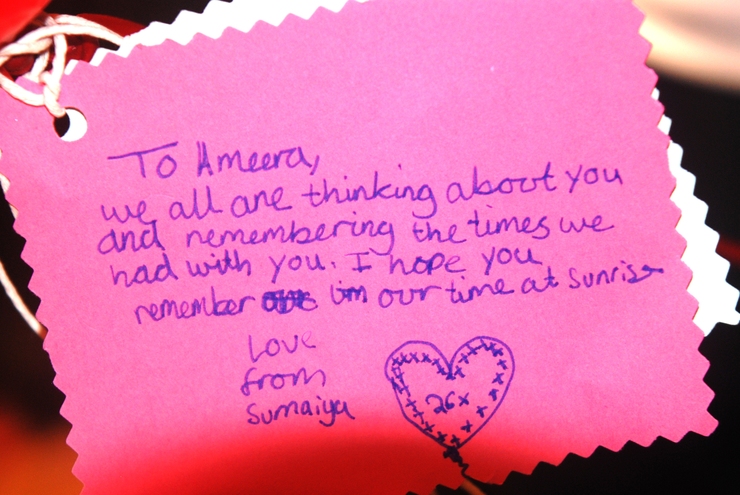 To Ameera,
we all are thinking about you
and remembering the times we
had with you. I hope you
remember our time at Sunrise
Love
from
Sumaiya
26x